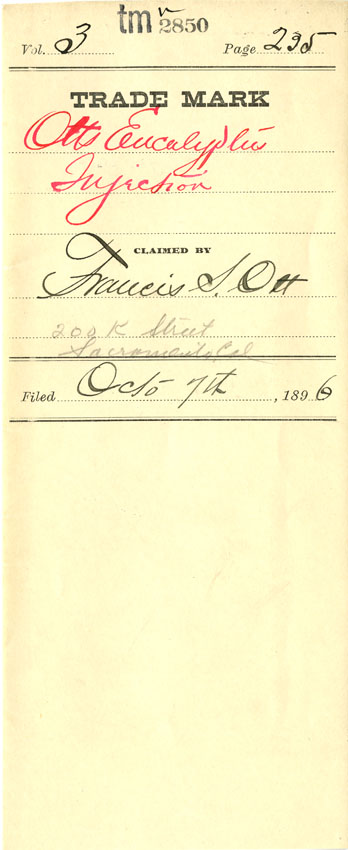 tm 2850
Vol. 3 Page 235
TRADE MARK
Otts Eucalyptus
Injection
CLAIMED BY
Francis S. Ott
200 K Street
Sacramento, Cal
Filed Octo 7th, 1896